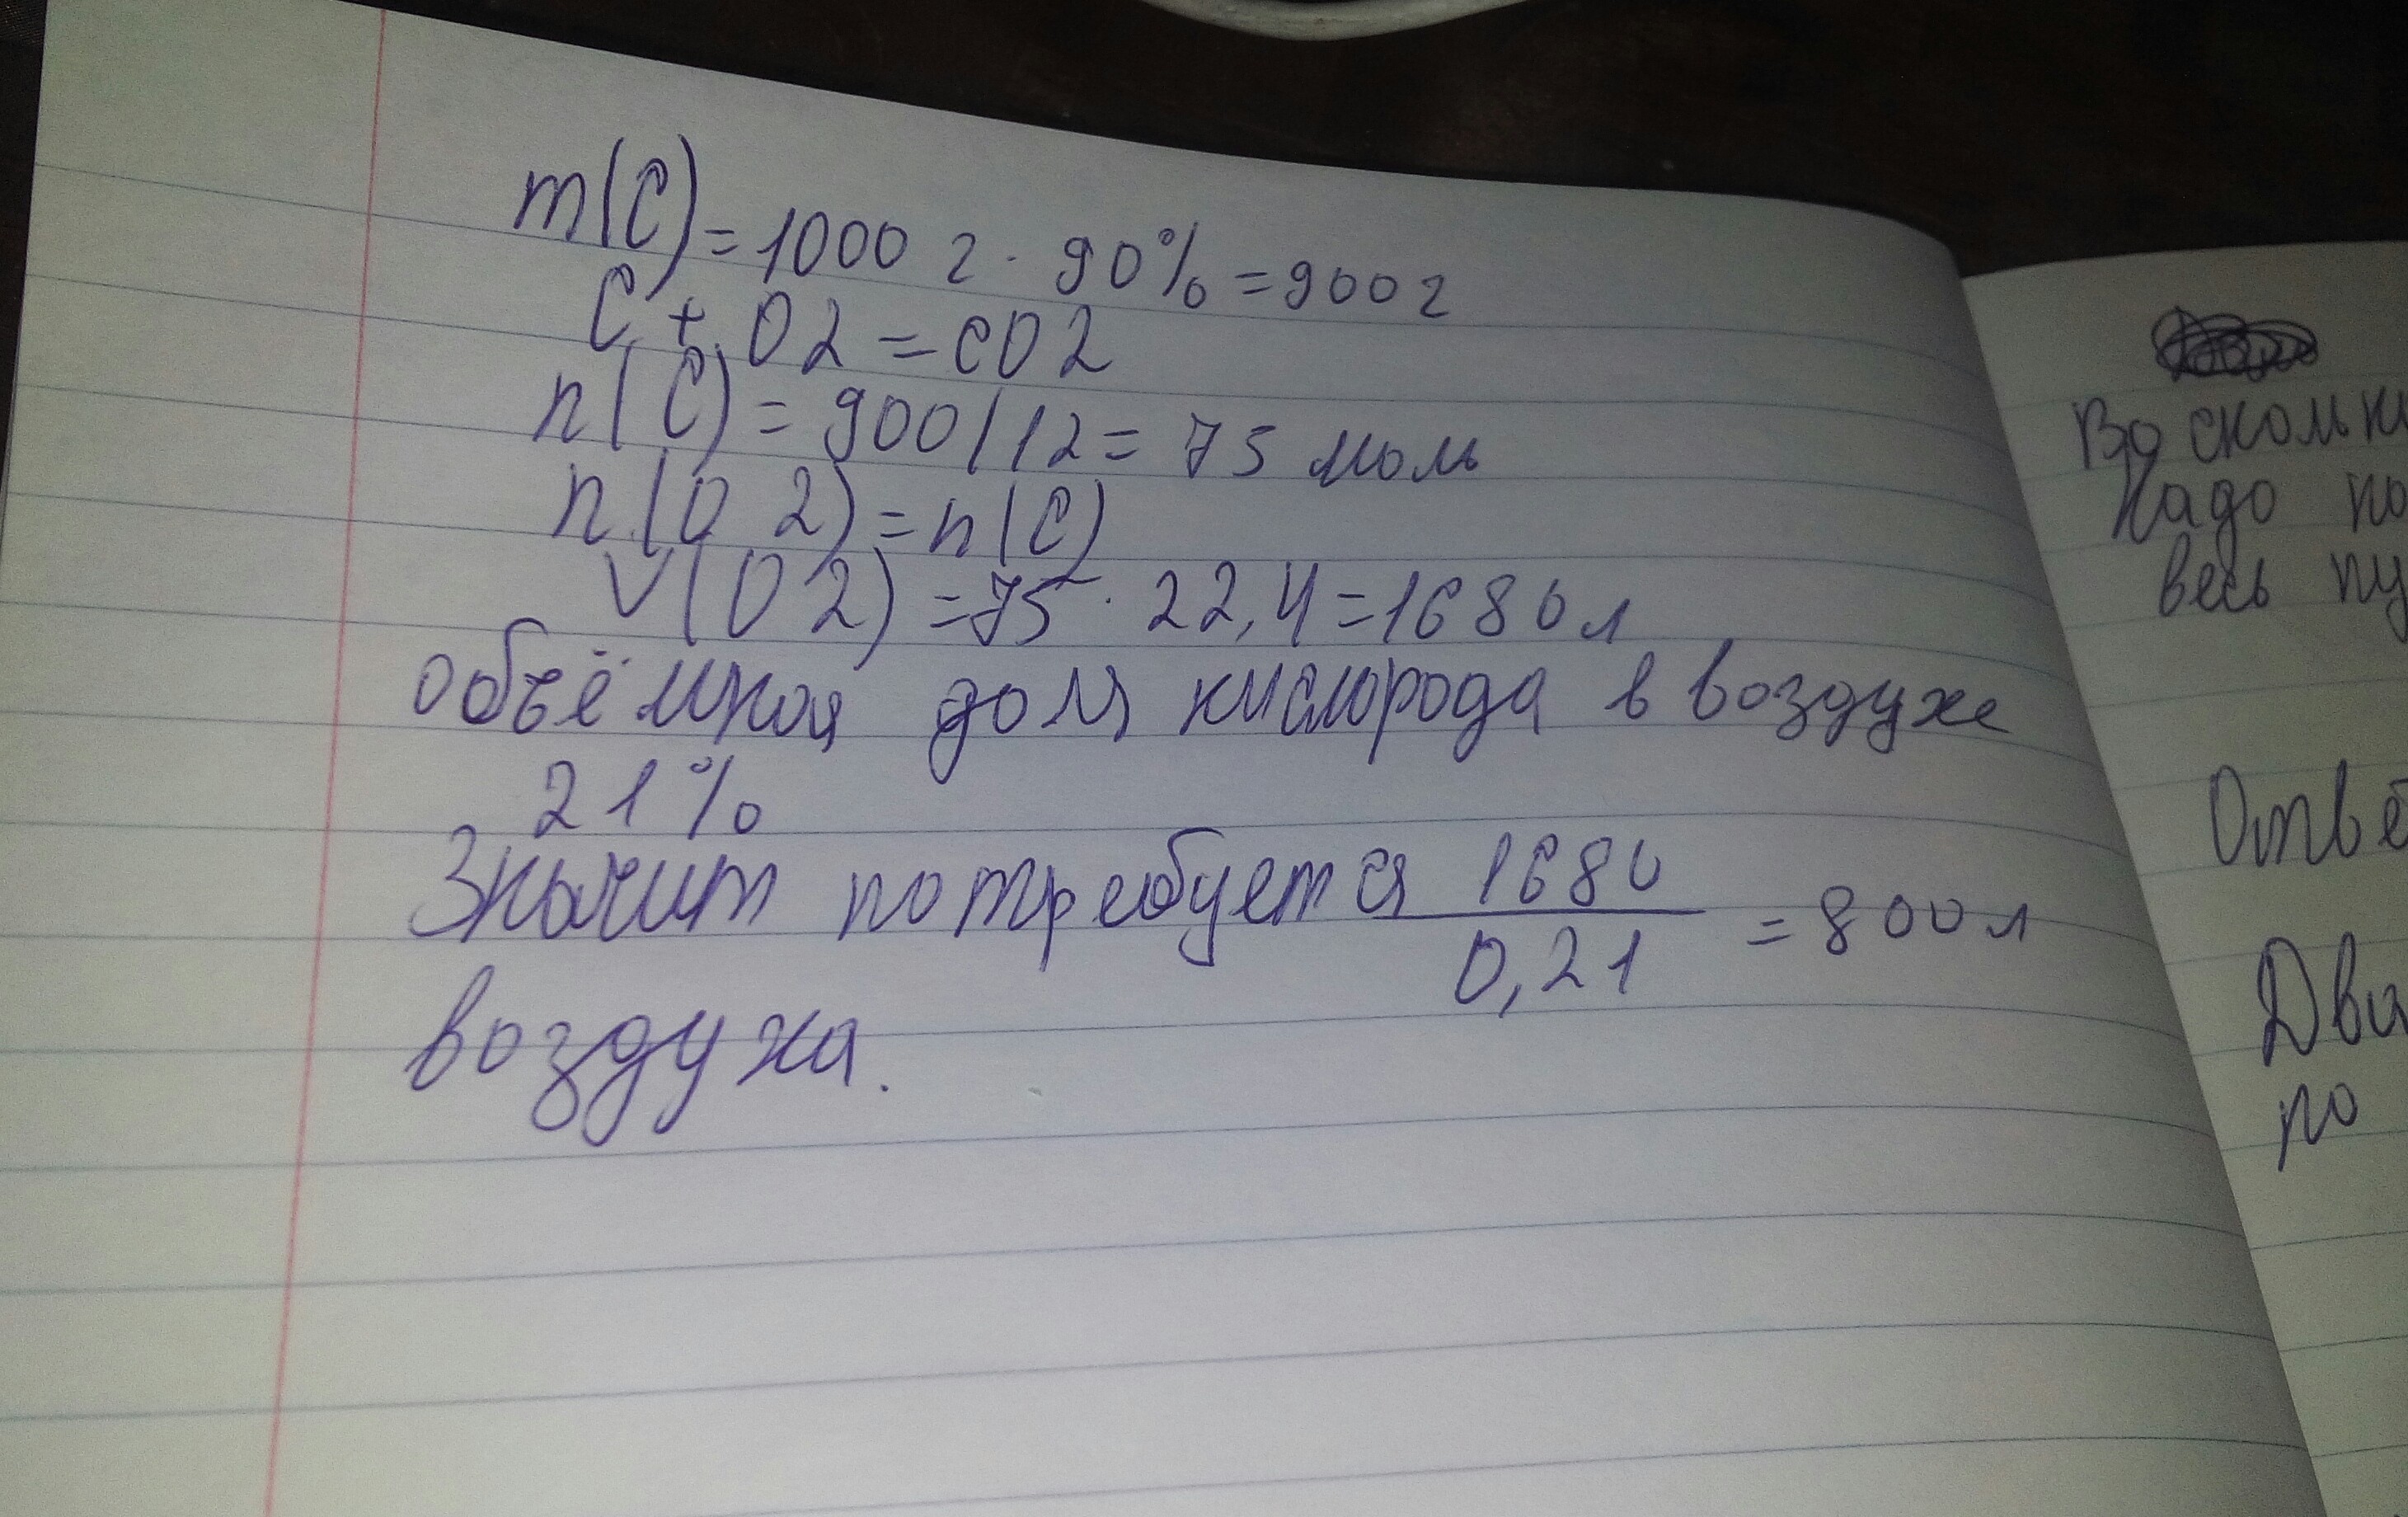 m(C)=1000 г · 90%=900г
C + O2=CO2
n(C)=900/12=75 моль
n(O2)=n(C)
V(O2)=75 · 22,4=1680л
объёмная доля кислорода в воздухе
21%
Значит потребуется 1680/0,21 = 800л
воздуха.
надо
весь
Два
по